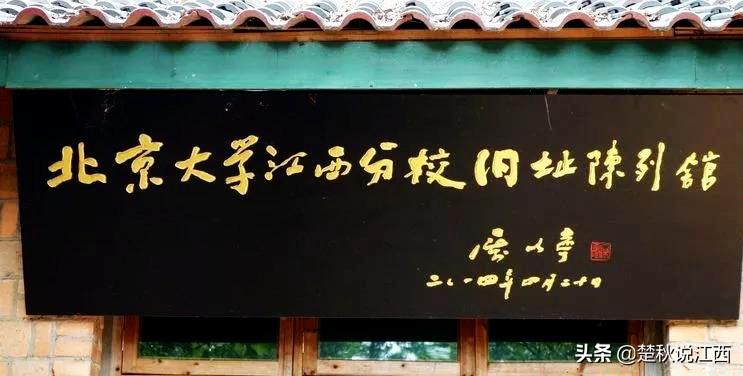 北京大学江西分校旧址陳列舘
二〇一四年四月二十日
头条 @楚秋说江西